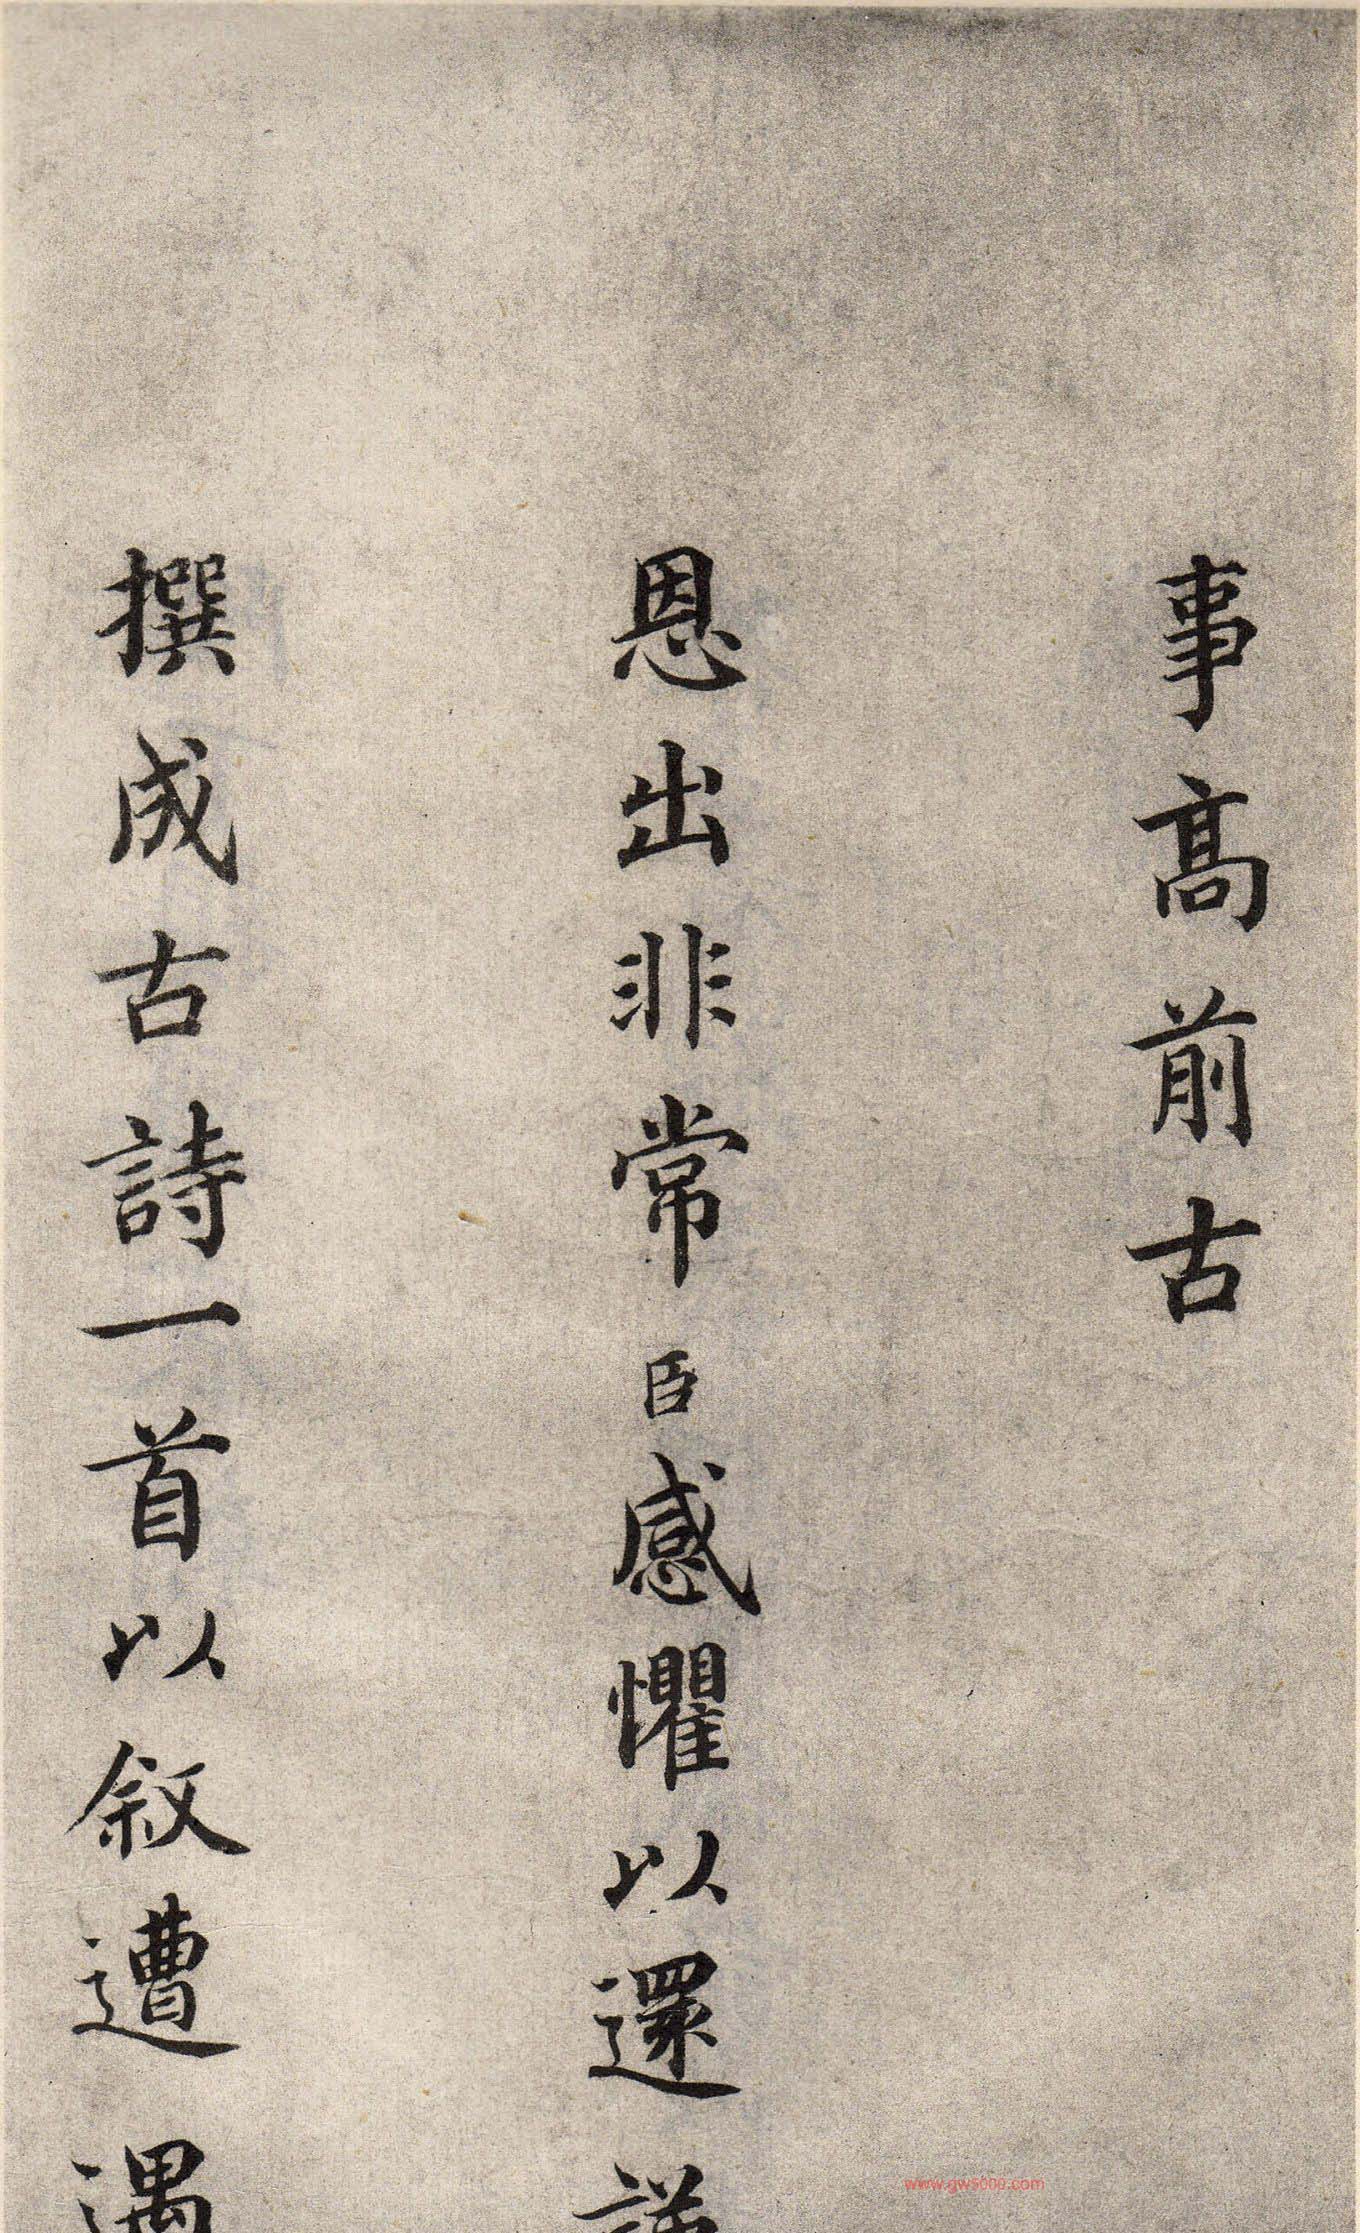 事高前古
恩出非常臣感懼以還謹
撰成古詩一首以叙遭遇
www.gw5000.com